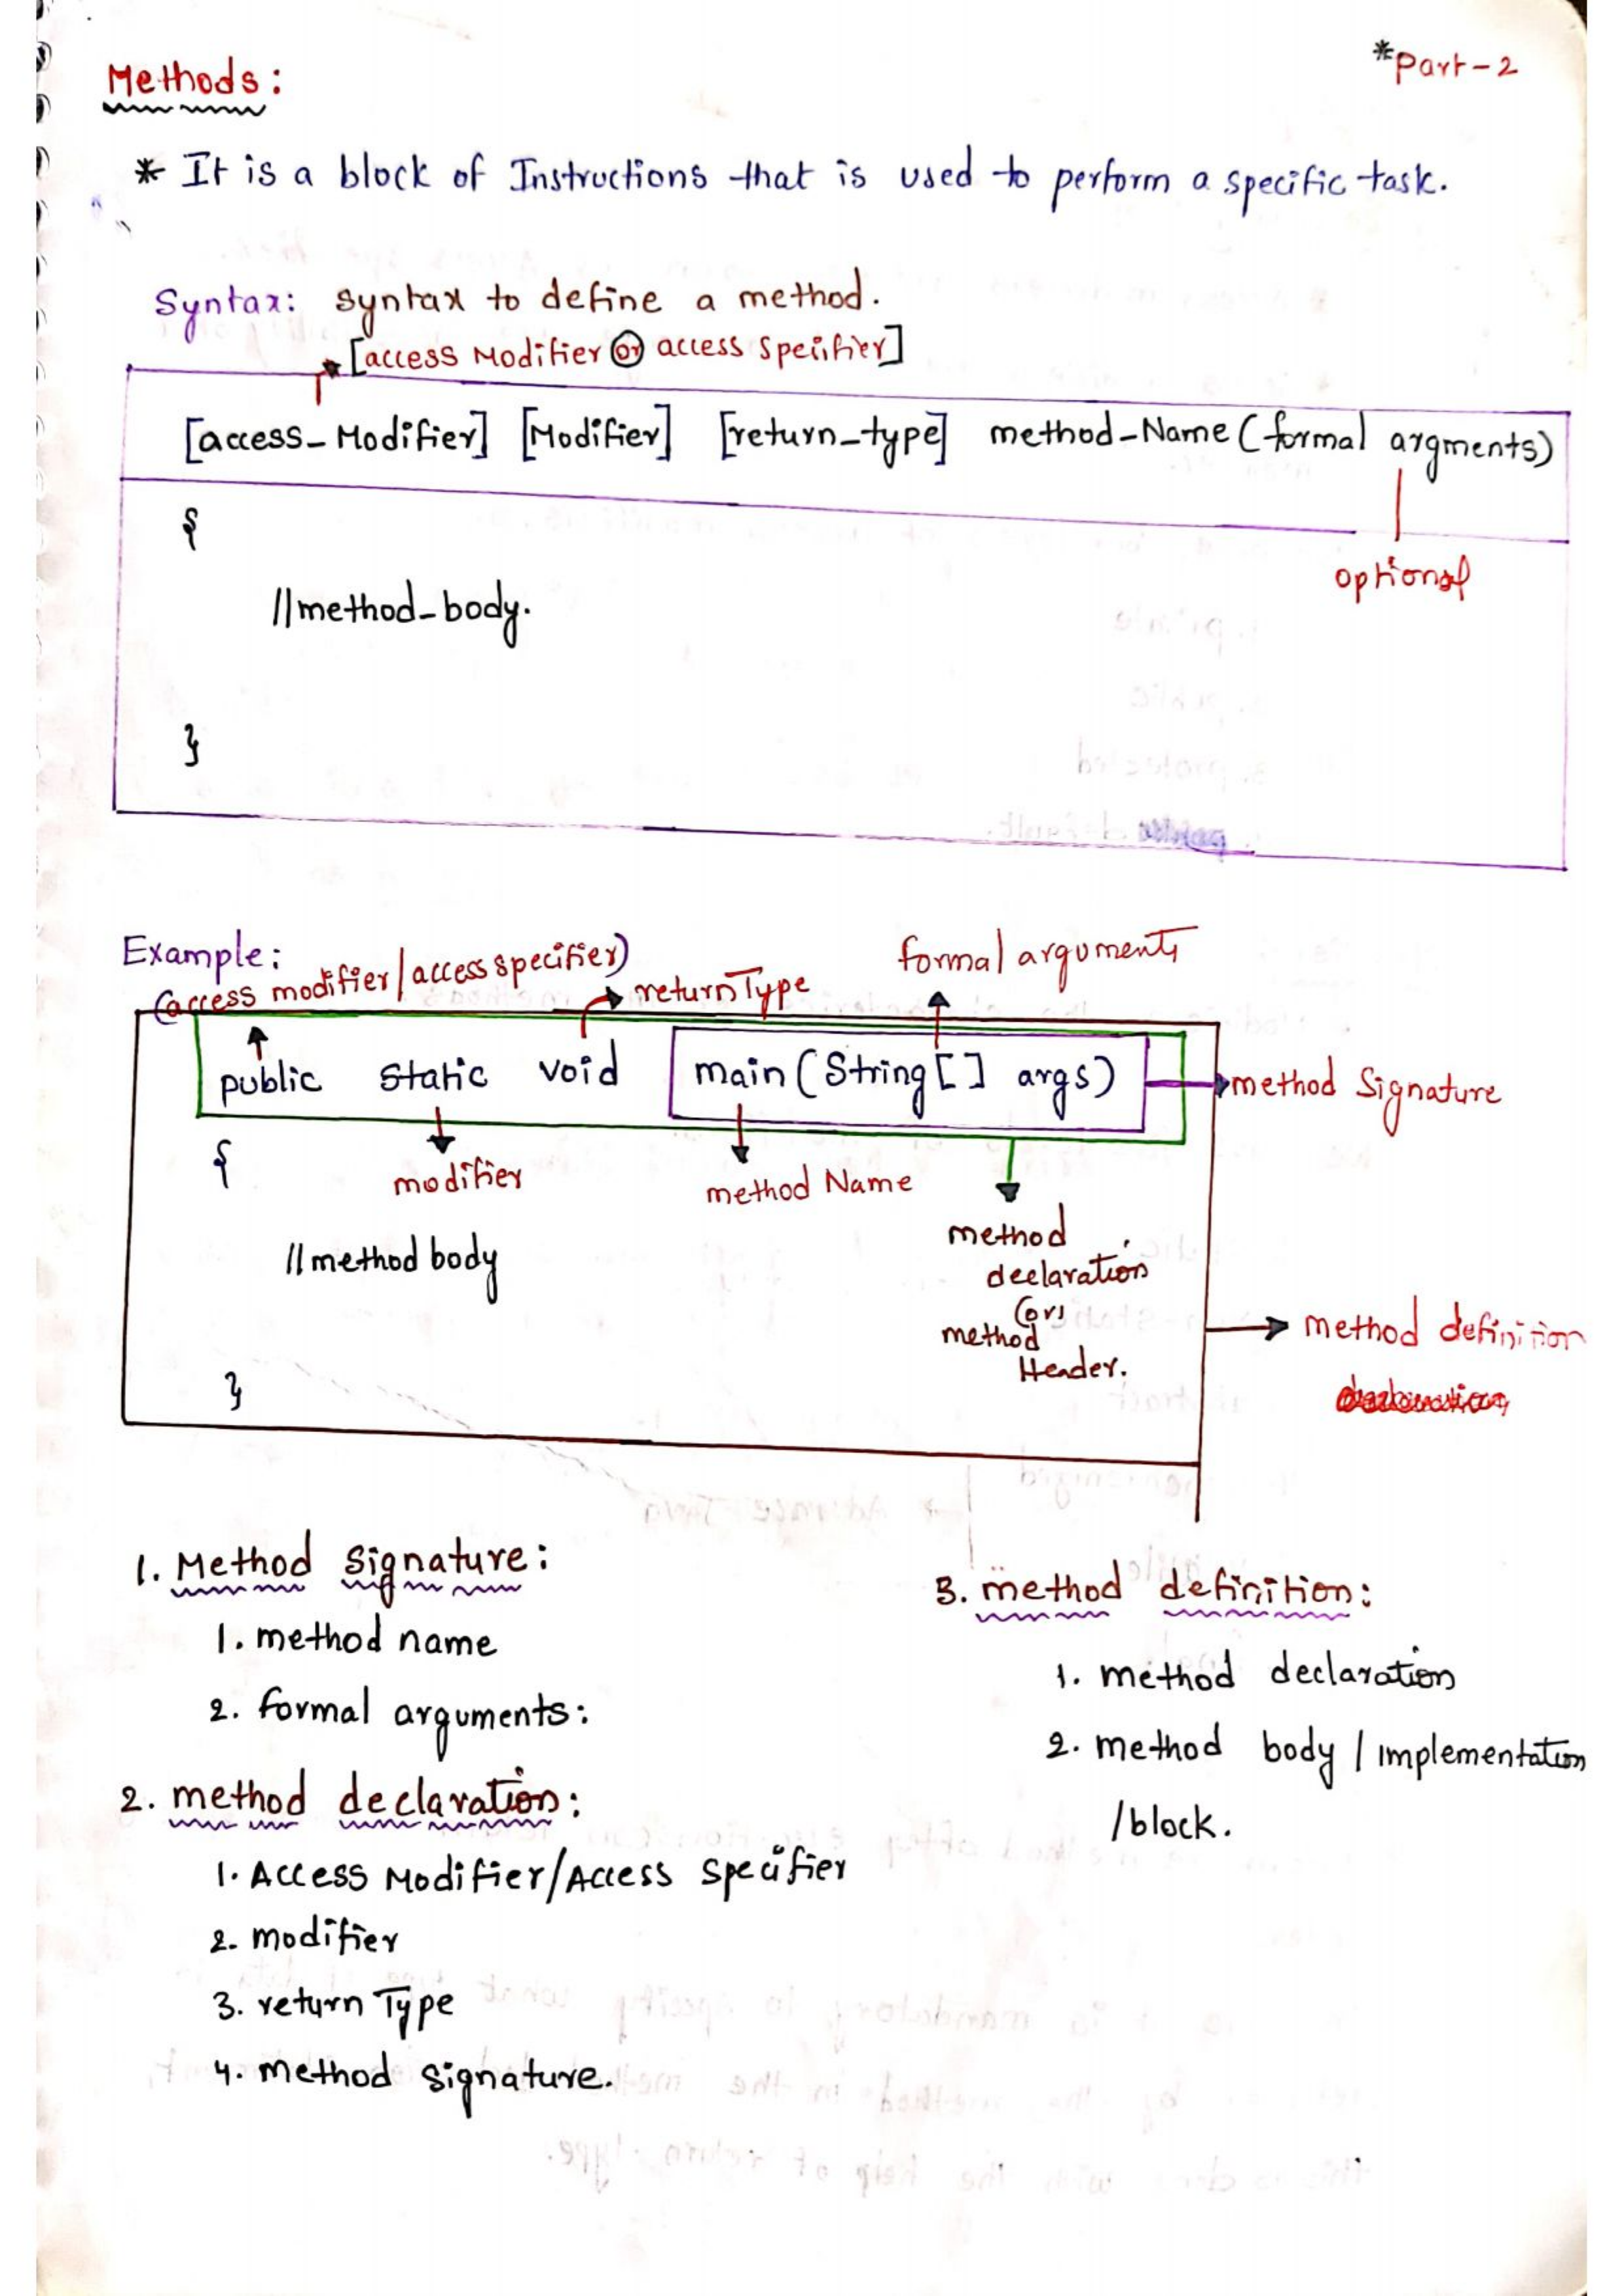 *Part-2
Methods:
* It is a block of Instructions that is used to perform a specific task.
Syntax: syntax to define a method.
[access Modifier or access Specifier]
[access_Modifier] [Modifier] [return_type] method_Name (formal argments)
{
optional
//method_body.
}
Example:
(access modifier/access specifier)
returnType
formal arguments
public static void main (String [] args)
method Signature
{
modifier
method Name
//method body
method
declaration
(or)
method
Header.
method definition
}
1. Method Signature:
1. method name
2. formal arguments:
2. method declaration:
1. Access Modifier/Access Specifier
2. modifier
3. return Type
4. method signature.
3. method definition:
1. method declaration
2. method body / implementation
/block.